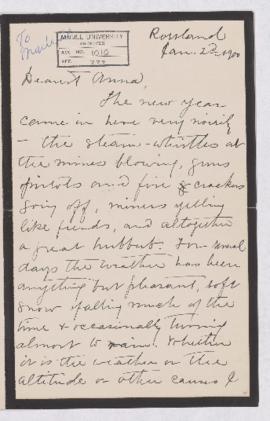 To
McGILL UNIVERSITY
ARCHIVES
ACC. NO. 1010
REF.
Rossland
Jan. 2nd 1900
Dearest Anna,
The new year
came in here very noisily
– the steam-whistles at
the mines blowing, guns
pistols and fire crackers
going off, miners yelling
like fiends, and altogether
a great hubbub. For several
days the weather has been
anything but pleasant, soft
snow falling much of the
time & occasionally turning
almost to rain. Whether
it is the weather or the
altitude or other causes I